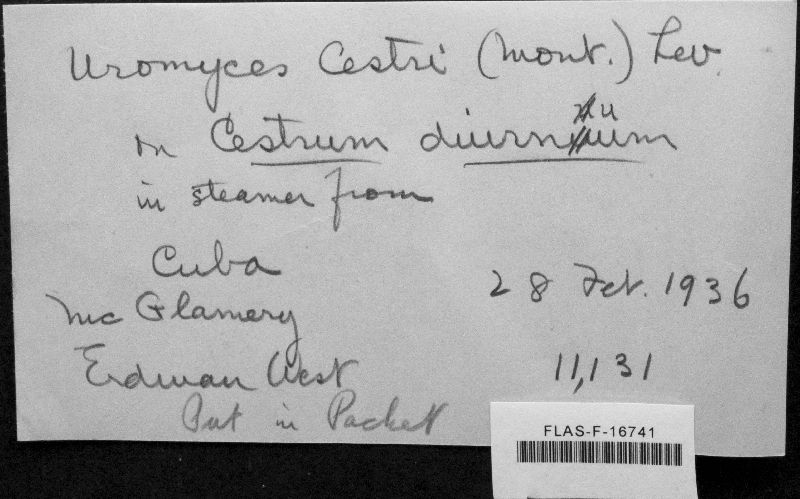 Uromyces Cestri (Mont.) Lev.
on Cestrum diurnum
in steamer from
Cuba
28 Feb. 1936
McGlamery
Erdman West
11,131
Put in Packet
FLAS-F-16741